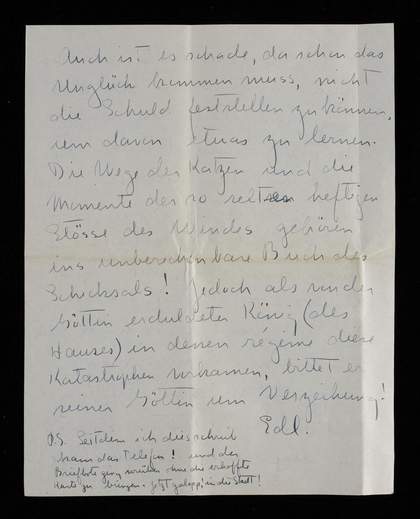 Auch ist es schade, da schon das
Unglück kommen muss, nicht
die Schuld feststellen zu können,
um davon etwas zu lernen.
Die Wege der Katzen und die
Momente der so seltsen heftigen
Stösse des Windes gehören
ins unberechenbare Buch des
Schicksals! Jedoch als von der
Göttin erduldeter König (des
Hauses) in dessen régime diese
Katastrophen vorkamen, bittet er
seiner Göttin um Verzeihung!
Edl.
P.S. Seitdem ich dies schrieb
kam das Telefon! und der
Briefbote ging vorüber ohne die erhoffte
Karte zu bringen. Jetzt galopp! in die Stadt!